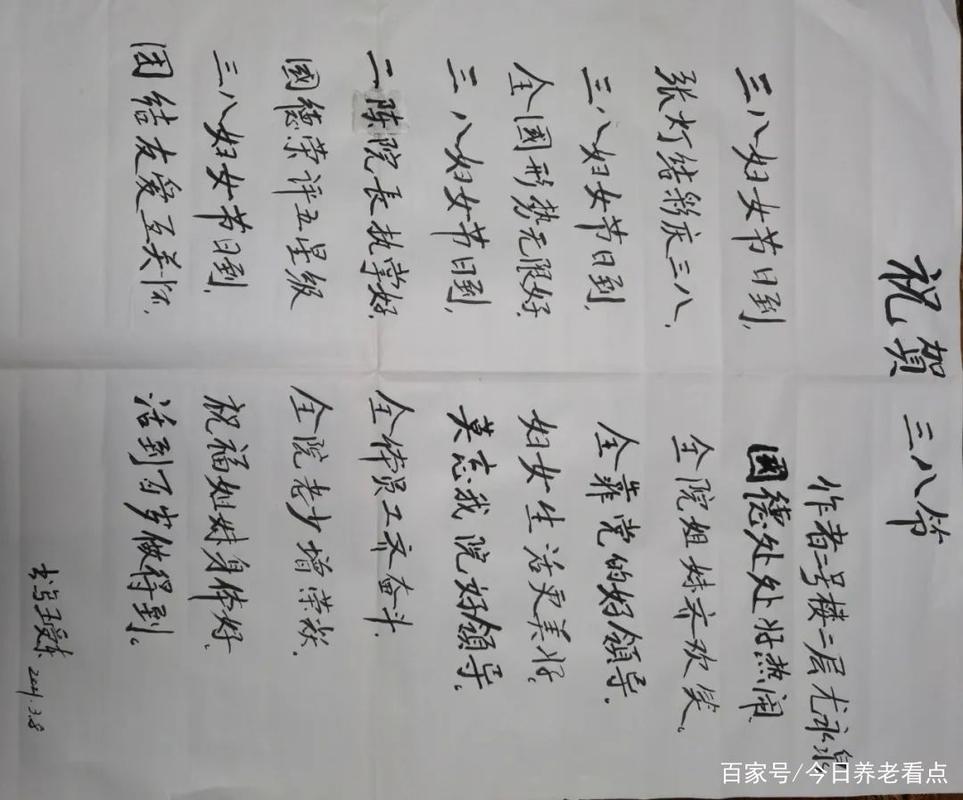 祝賀 三八节
作者二号楼二层尤永泉
三八妇女节日到, 国德处处好热闹
张灯结彩庆三八, 全院姐妹齐欢笑。
三八妇女节日到, 全靠党的好领导.
全國形势无限好. 妇女生活更美好.
三八妇女节日到, 莫忘我院好领导.
二陈院長执掌好, 全体员工齐奋斗.
國德荣评五星级 全院老少增荣
三八妇女节日到, 祝福姐妹身体好.
团结友爱互关怀, 活到百岁做得到。
书写王 2021.3.8
百家号/今日养老看点